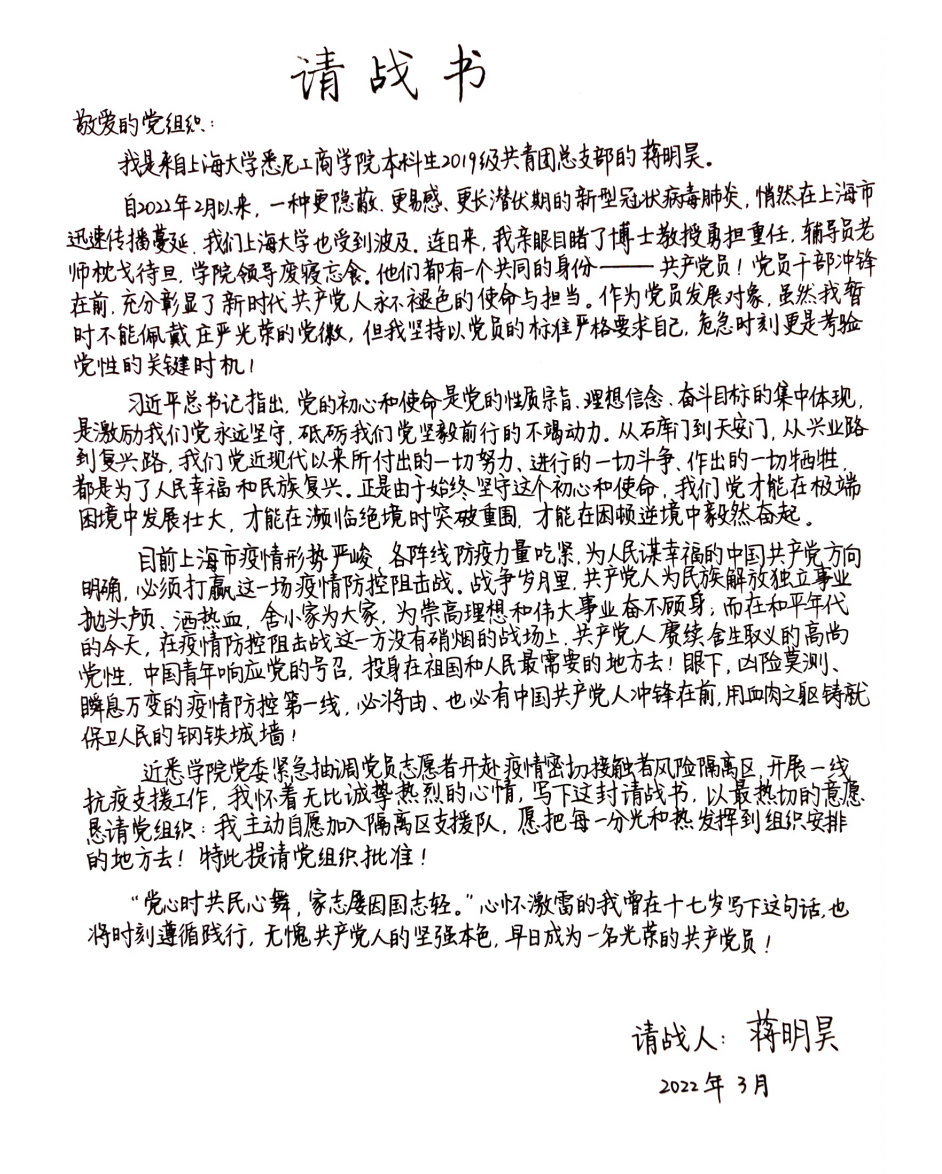 请战书
敬爱的党组织:
我是来自上海大学悉尼工商学院本科生2019级共青团总支部的蒋明昊。
自2022年2月以来，一种更隐蔽、更易感、更长潜伏期的新型冠状病毒肺炎，悄然在上海市
迅速传播蔓延，我们上海大学也受到波及。连日来，我亲眼目睹了博士教授勇担重任，辅导员老
师枕戈待旦，学院领导废寝忘食。他们都有一个共同的身份——共产党员！党员干部冲锋
在前，充分彰显了新时代共产党人永不褪色的使命与担当。作为党员发展对象，虽然我暂
时不能佩戴庄严光荣的党徽，但我坚持以党员的标准严格要求自己，危急时刻更是考验
党性的关键时机！
习近平总书记指出，党的初心和使命是党的性质宗旨、理想信念、奋斗目标的集中体现，
是激励我们党永远坚守，砥砺我们党坚毅前行的不竭动力。从石库门到天安门，从兴业路
到复兴路，我们党近现代以来所付出的一切努力、进行的一切斗争、作出的一切牺牲，
都是为了人民幸福和民族复兴。正是由于始终坚守这个初心和使命，我们党才能在极端
困境中发展壮大，才能在濒临绝境时突破重围，才能在困顿逆境中毅然奋起。
目前上海市疫情形势严峻，各阵线防疫力量吃紧，为人民谋幸福的中国共产党方向
明确，必须打赢这一场疫情防控阻击战。战争岁月里，共产党人为民族解放独立事业
抛头颅、洒热血，舍小家为大家，为崇高理想和伟大事业奋不顾身；而在和平年代
的今天，在疫情防控阻击战这一方没有硝烟的战场上，共产党人赓续舍生取义的高尚
党性，中国青年响应党的号召，投身在祖国和人民最需要的地方去！眼下，凶险莫测、
瞬息万变的疫情防控第一线，必将由、也必有中国共产党人冲锋在前，用血肉之躯铸就
保卫人民的钢铁城墙！
近悉学院党委紧急抽调党员志愿者开赴疫情密切接触者风险隔离区，开展一线
抗疫支援工作，我怀着无比诚挚热烈的心情，写下这封请战书，以最热切的意愿
恳请党组织：我主动自愿加入隔离区支援队，愿把每一分光和热发挥到组织安排
的地方去！特此提请党组织批准！
“党心时共民心舞，家志屡因国志轻。”心怀激雷的我曾在十七岁写下这句话，也
将时刻遵循践行，无愧共产党人的坚强本色，早日成为一名光荣的共产党员！
请战人：蒋明昊
2022年3月